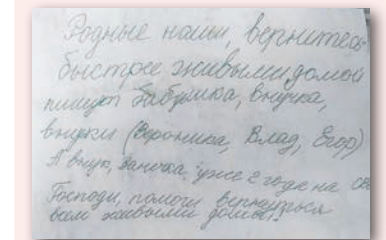 Родные наши, вернитесь
быстрее живыми домой
пишут бабушка, внучка,
внуки (Вероника, Влад, Егор)
А внук, Ванечка, уже 2 года на
Господи, помоги вернуться
всем живыми домой!